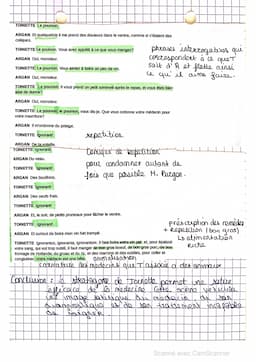 TOINETTE Le poumon.
ARGAN Et quelquefois il me prend des douleurs dans le ventre, comme si c'étaient des
coliques.
TOINETTE Le poumon. Vous avez appétit à ce que vous mangez?
ARGAN Oui, monsieur.
TOINETTE Le poumon. Vous aimez à boire un peu de vin.
ARGAN Oui, monsieur.
TOINETTE Le poumon. Il vous prend un petit sommeil après le repas, et vous êtes bien
aise de dormir?
ARGAN Oui, monsieur.
TOINETTE Le poumon, le poumon, vous dis-je. Que vous ordonne votre médecin pour
votre nourriture?
ARGAN Il m'ordonne du potage.
TOINETTE Ignorant!
ARGAN De la volaille.
TOINETTE Ignorant!
ARGAN Du veau.
TOINETTE Ignorant!
ARGAN Des bouillons.
TOINETTE Ignorant!
ARGAN Des œufs frais.
TOINETTE Ignorant!
ARGAN Et, le soir, de petits pruneaux pour lâcher le ventre.
TOINETTE Ignorant!
ARGAN Et surtout de boire mon vin fort trempé.
TOINETTE Ignorantus, ignoranta, ignorantum. Il faut boire votre vin pur, et, pour épaissir
votre sang, qui est trop subtil, il faut manger de bon gros bœuf, de bon gros porc, de bon
fromage de Hollande; du gruau et du riz, et des marrons et des oublies, pour coller et
conglutiner. Votre médecin est une bête.
phrases interrogatives qui
correspondent à ce que T
sait d'A et flatte ainsi
ce qu'il aime faire.
répétition
Comique de répétition
pour condamner autant de
fois que possible M. Purgon.
prescription des remèdes
+ répétition (bon gros)
↳ alimentation
riche
animalisation
caricature des médecins que T associe à des animaux
Conclusion : la stratagème de Toinette permet une satire
efficace de la médecine. Cette scène véhicule
une image satirique du médecin, de son